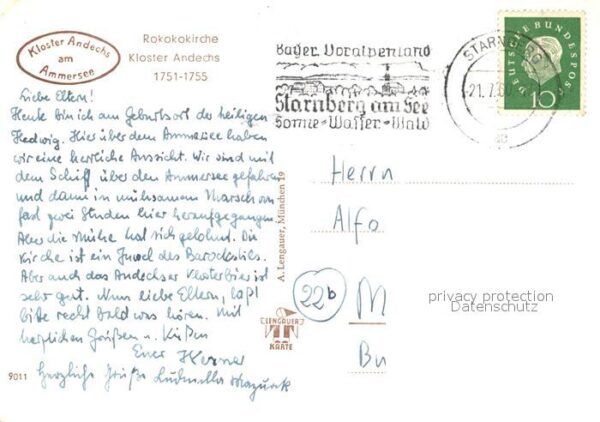 Kloster Andechs
am
Ammersee
Rokokokirche
Kloster Andechs
1751-1755
Bayer. Voralpenland
Starnberg am See
Sonne-Wasser-Wald
STARNBERG
21. 7. 60
DEUTSCHE BUNDESPOST
10
Liebe Eltern!
Heute bin ich am Geburtsort der heiligen
Hedwig. Hier über dem Ammersee haben
wir eine herrliche Aussicht. Wir sind mit
dem Schiff über den Ammersee gefahren
und dann in mühsamem Marsch von
fast zwei Stunden hier heraufgegangen.
Aber die Mühe hat sich gelohnt. Die
Kirche ist ein Juwel des Barockstils.
Aber auch das Andechser Klosterbier ist
sehr gut. Nun liebe Eltern, laßt
bitte recht bald was hören. Mit
herzlichen Grüßen u. Küssen
Euer Werner
Herzliche Grüße Ludmilla
9011
A. Lengauer, München 19
LENGAUER
KARTE
Herrn
Alfo
22b
M
Bu
privacy protection
Datenschutz